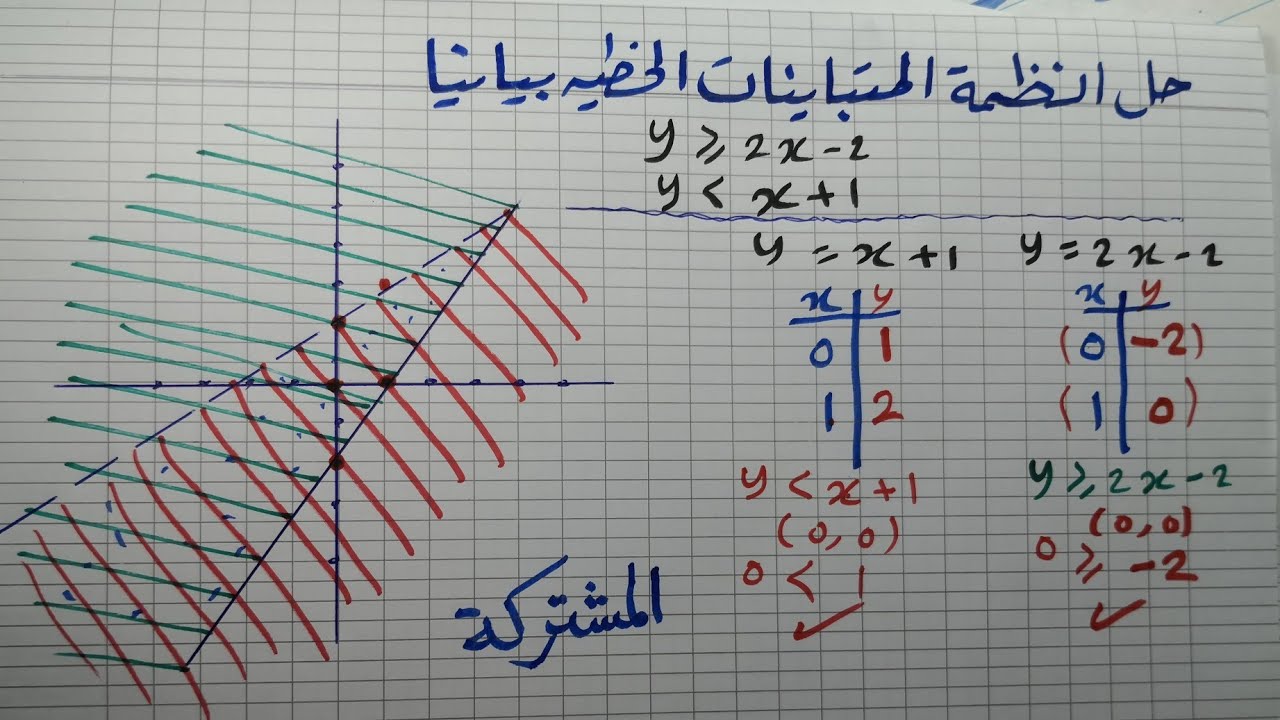 حل انظمة المتباينات الخطيه بيانيا
y ≥ 2x - 2
y < x + 1
y = x + 1
x y
0 1
1 2
y < x + 1
(0, 0)
0 < 1
y = 2x - 2
x y
(0 -2)
(1 0)
y ≥ 2x - 2
(0, 0)
0 ≥ -2
المشتركة